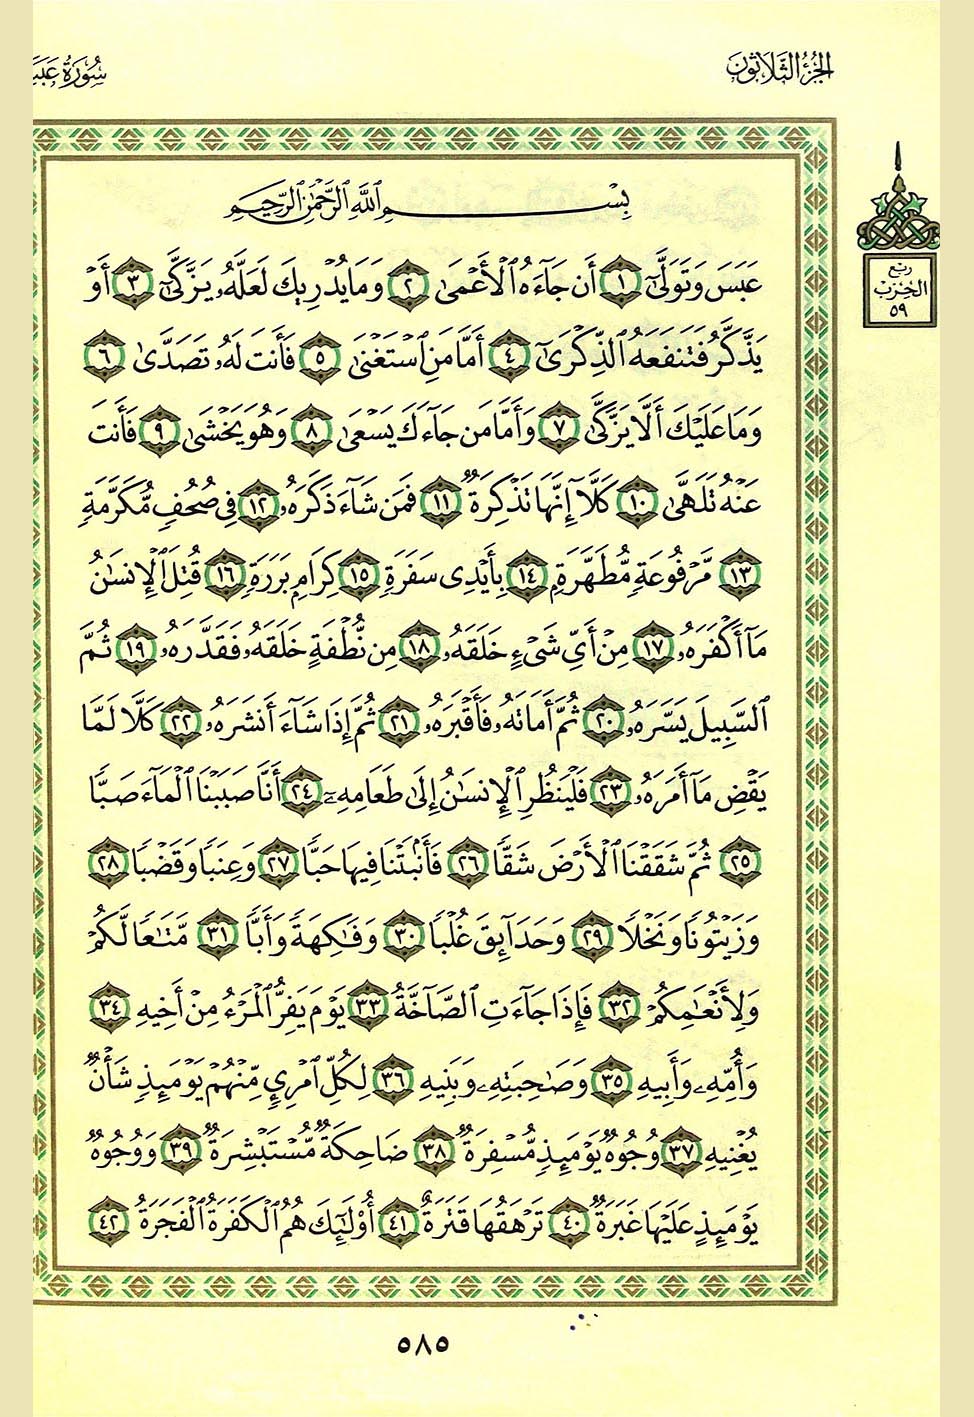 الجزء الثلاثون
سورة عبس
بِسْمِ اللَّهِ الرَّحْمَٰنِ الرَّحِيمِ
عَبَسَ وَتَوَلَّىٰٓ ١ أَن جَآءَهُ ٱلْأَعْمَىٰ ٢ وَمَا يُدْرِيكَ لَعَلَّهُۥ يَزَّكَّىٰٓ ٣ أَوْ
يَذَّكَّرُ فَتَنفَعَهُ ٱلذِّكْرَىٰٓ ٤ أَمَّا مَنِ ٱسْتَغْنَىٰ ٥ فَأَنتَ لَهُۥ تَصَدَّىٰ ٦
وَمَا عَلَيْكَ أَلَّا يَزَّكَّىٰ ٧ وَأَمَّا مَن جَآءَكَ يَسْعَىٰ ٨ وَهُوَ يَخْشَىٰ ٩ فَأَنتَ
عَنْهُ تَلَهَّىٰ ١٠ كَلَّآ إِنَّهَا تَذْكِرَةٌ ١١ فَمَن شَآءَ ذَكَرَهُۥ ١٢ فِى صُحُفٍ مُّكَرَّمَةٍ
١٣ مَّرْفُوعَةٍ مُّطَهَّرَةٍۭ ١٤ بِأَيْدِى سَفَرَةٍ ١٥ كِرَامٍۭ بَرَرَةٍ ١٦ قُتِلَ ٱلْإِنسَٰنُ
مَآ أَكْفَرَهُۥ ١٧ مِنْ أَىِّ شَىْءٍ خَلَقَهُۥ ١٨ مِن نُّطْفَةٍ خَلَقَهُۥ فَقَدَّرَهُۥ ١٩ ثُمَّ
ٱلسَّبِيلَ يَسَّرَهُۥ ٢٠ ثُمَّ أَمَاتَهُۥ فَأَقْبَرَهُۥ ٢١ ثُمَّ إِذَا شَآءَ أَنشَرَهُۥ ٢٢ كَلَّا لَمَّا
يَقْضِ مَآ أَمَرَهُۥ ٢٣ فَلْيَنظُرِ ٱلْإِنسَٰنُ إِلَىٰ طَعَامِهِۦٓ ٢٤ أَنَّا صَبَبْنَا ٱلْمَآءَ صَبًّا
٢٥ ثُمَّ شَقَقْنَا ٱلْأَرْضَ شَقًّا ٢٦ فَأَنۢبَتْنَا فِيهَا حَبًّا ٢٧ وَعِنَبًا وَقَضْبًا ٢٨
وَزَيْتُونًا وَنَخْلًا ٢٩ وَحَدَآئِقَ غُلْبًا ٣٠ وَفَٰكِهَةً وَأَبًّا ٣١ مَّتَٰعًا لَّكُمْ
وَلِأَنْعَٰمِكُمْ ٣٢ فَإِذَا جَآءَتِ ٱلصَّآخَّةُ ٣٣ يَوْمَ يَفِرُّ ٱلْمَرْءُ مِنْ أَخِيهِ ٣٤
وَأُمِّهِۦ وَأَبِيهِ ٣٥ وَصَٰحِبَتِهِۦ وَبَنِيهِ ٣٦ لِكُلِّ ٱمْرِئٍ مِّنْهُمْ يَوْمَئِذٍ شَأْنٌ
يُغْنِيهِ ٣٧ وُجُوهٌ يَوْمَئِذٍ مُّسْفِرَةٌ ٣٨ ضَاحِكَةٌ مُّسْتَبْشِرَةٌ ٣٩ وَوُجُوهٌ
يَوْمَئِذٍ عَلَيْهَا غَبَرَةٌ ٤٠ تَرْهَقُهَا قَتَرَةٌ ٤١ أُو۟لَٰٓئِكَ هُمُ ٱلْكَفَرَةُ ٱلْفَجَرَةُ ٤٢
ربع
الحزب
٥٩
٥٨٥